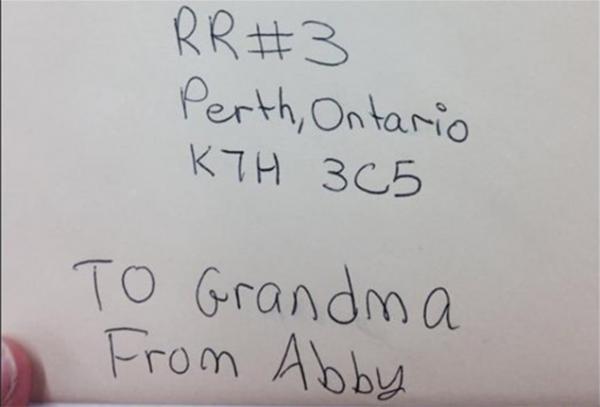 RR#3
Perth, Ontario
K7H 3C5
TO Grandma
From Abby